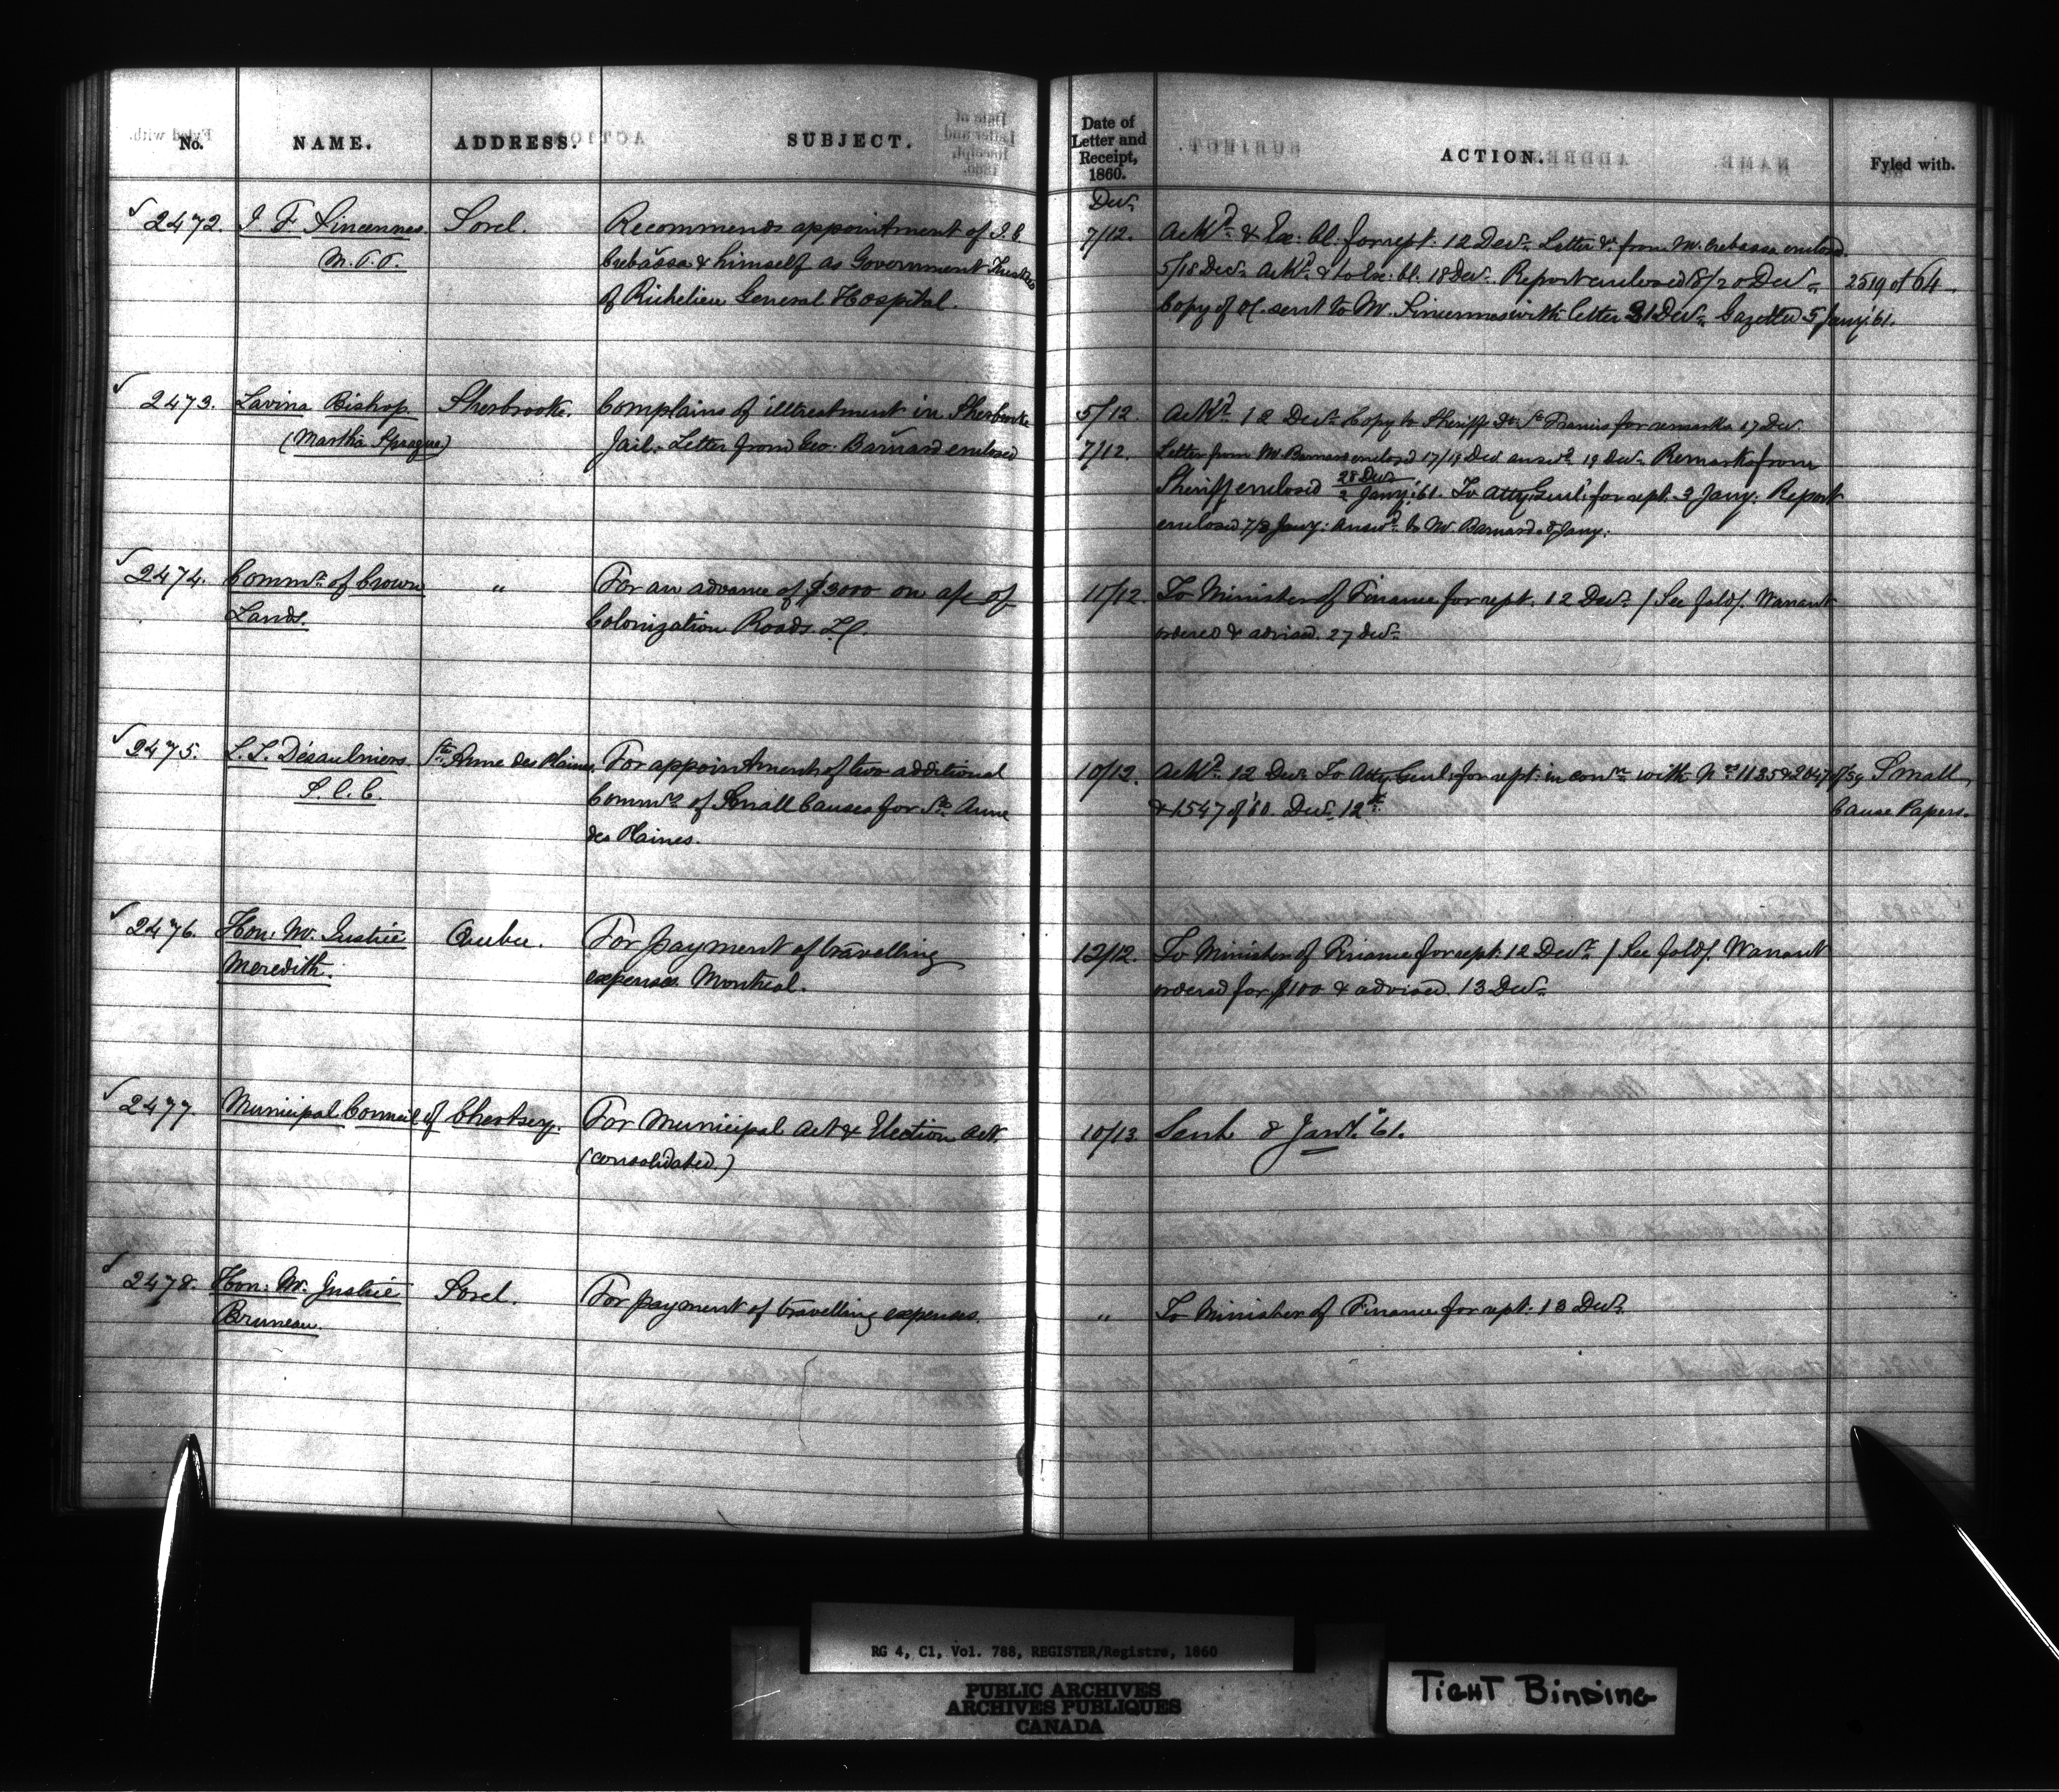 No. NAME. ADDRESS. SUBJECT. Date of Letter and Receipt, 1860. ACTION. Fyled with.
Decr
2472. J. F. Sincennes Sorel. Recommends appointment of J. G. 7/12. Ackd & Ex: Cl. for rept. 12 Decr Letter &c from Mr. Crebassa enclosed
M.P.P. Crebassa & himself as Government Trustees 5/18 Decr Ackd & to Ex: Cl. 18 Decr. Report enclosed 18/20 Decr 2519 of 64.
of Richelieu General Hospital. Copy of OC. sent to Mr. Sincennes with letter 21 Decr Gazetted 5 Jany '61.
2473. Lavina Bishop Sherbrooke. Complains of illtreatment in Sherbrooke 5/12. Ackd 12 Decr Copy to Sheriff Dt. St Francis for remarks 17 Dec.
(Martha Sprague) Jail. Letter from Geo: Barnard enclosed 7/12. Letter from Mr Barnard enclosed 17/19 Dec answd 19 Decr Remarks from
Sheriff enclosed 28 Decr/2 Jany '61. To Atty Genl. for rept. 3 Jany. Report
enclosed 7/8 Jany: answd to Mr. Barnard 8 Jany.
2474. Commr of Crown " For an advance of $3000 on a/c of 11/12. To Minister of Finance for rept. 12 Decr / See fold /. Warrant
Lands. Colonization Roads. LC. ordered & advised. 27 Decr
2475. L. L. Désaulniers Ste Anne des Plaines. For appointment of two additional 10/12. Ackd 12 Decr To Atty Genl. for rept: in conn with Nos 1135 & 2047 of '59 Small
S. C. C. Commrs of Small Causes for Ste Anne & 1547 of '60. Decr 12th Cause Papers.
des Plaines.
2476. Hon. Mr. Justice Quebec. For payment of travelling 12/12. To Minister of Finance for rept: 12 Decr / See fold /. Warrant
Meredith. expenses. Montreal. ordered for $100 & advised. 13 Decr
2477. Municipal Council of Chertsey. For Municipal Act & Election Act. 10/13 Sent 8 Jany. '61.
(consolidated.)
2478. Hon: Mr. Justice Sorel. For payment of travelling expenses. " To Minister of Finance for rept: 13 Decr.
Bruneau.
RG 4, C1, Vol. 788, REGISTER/Registre, 1860
PUBLIC ARCHIVES
ARCHIVES PUBLIQUES
CANADA
TIGHT BINDING